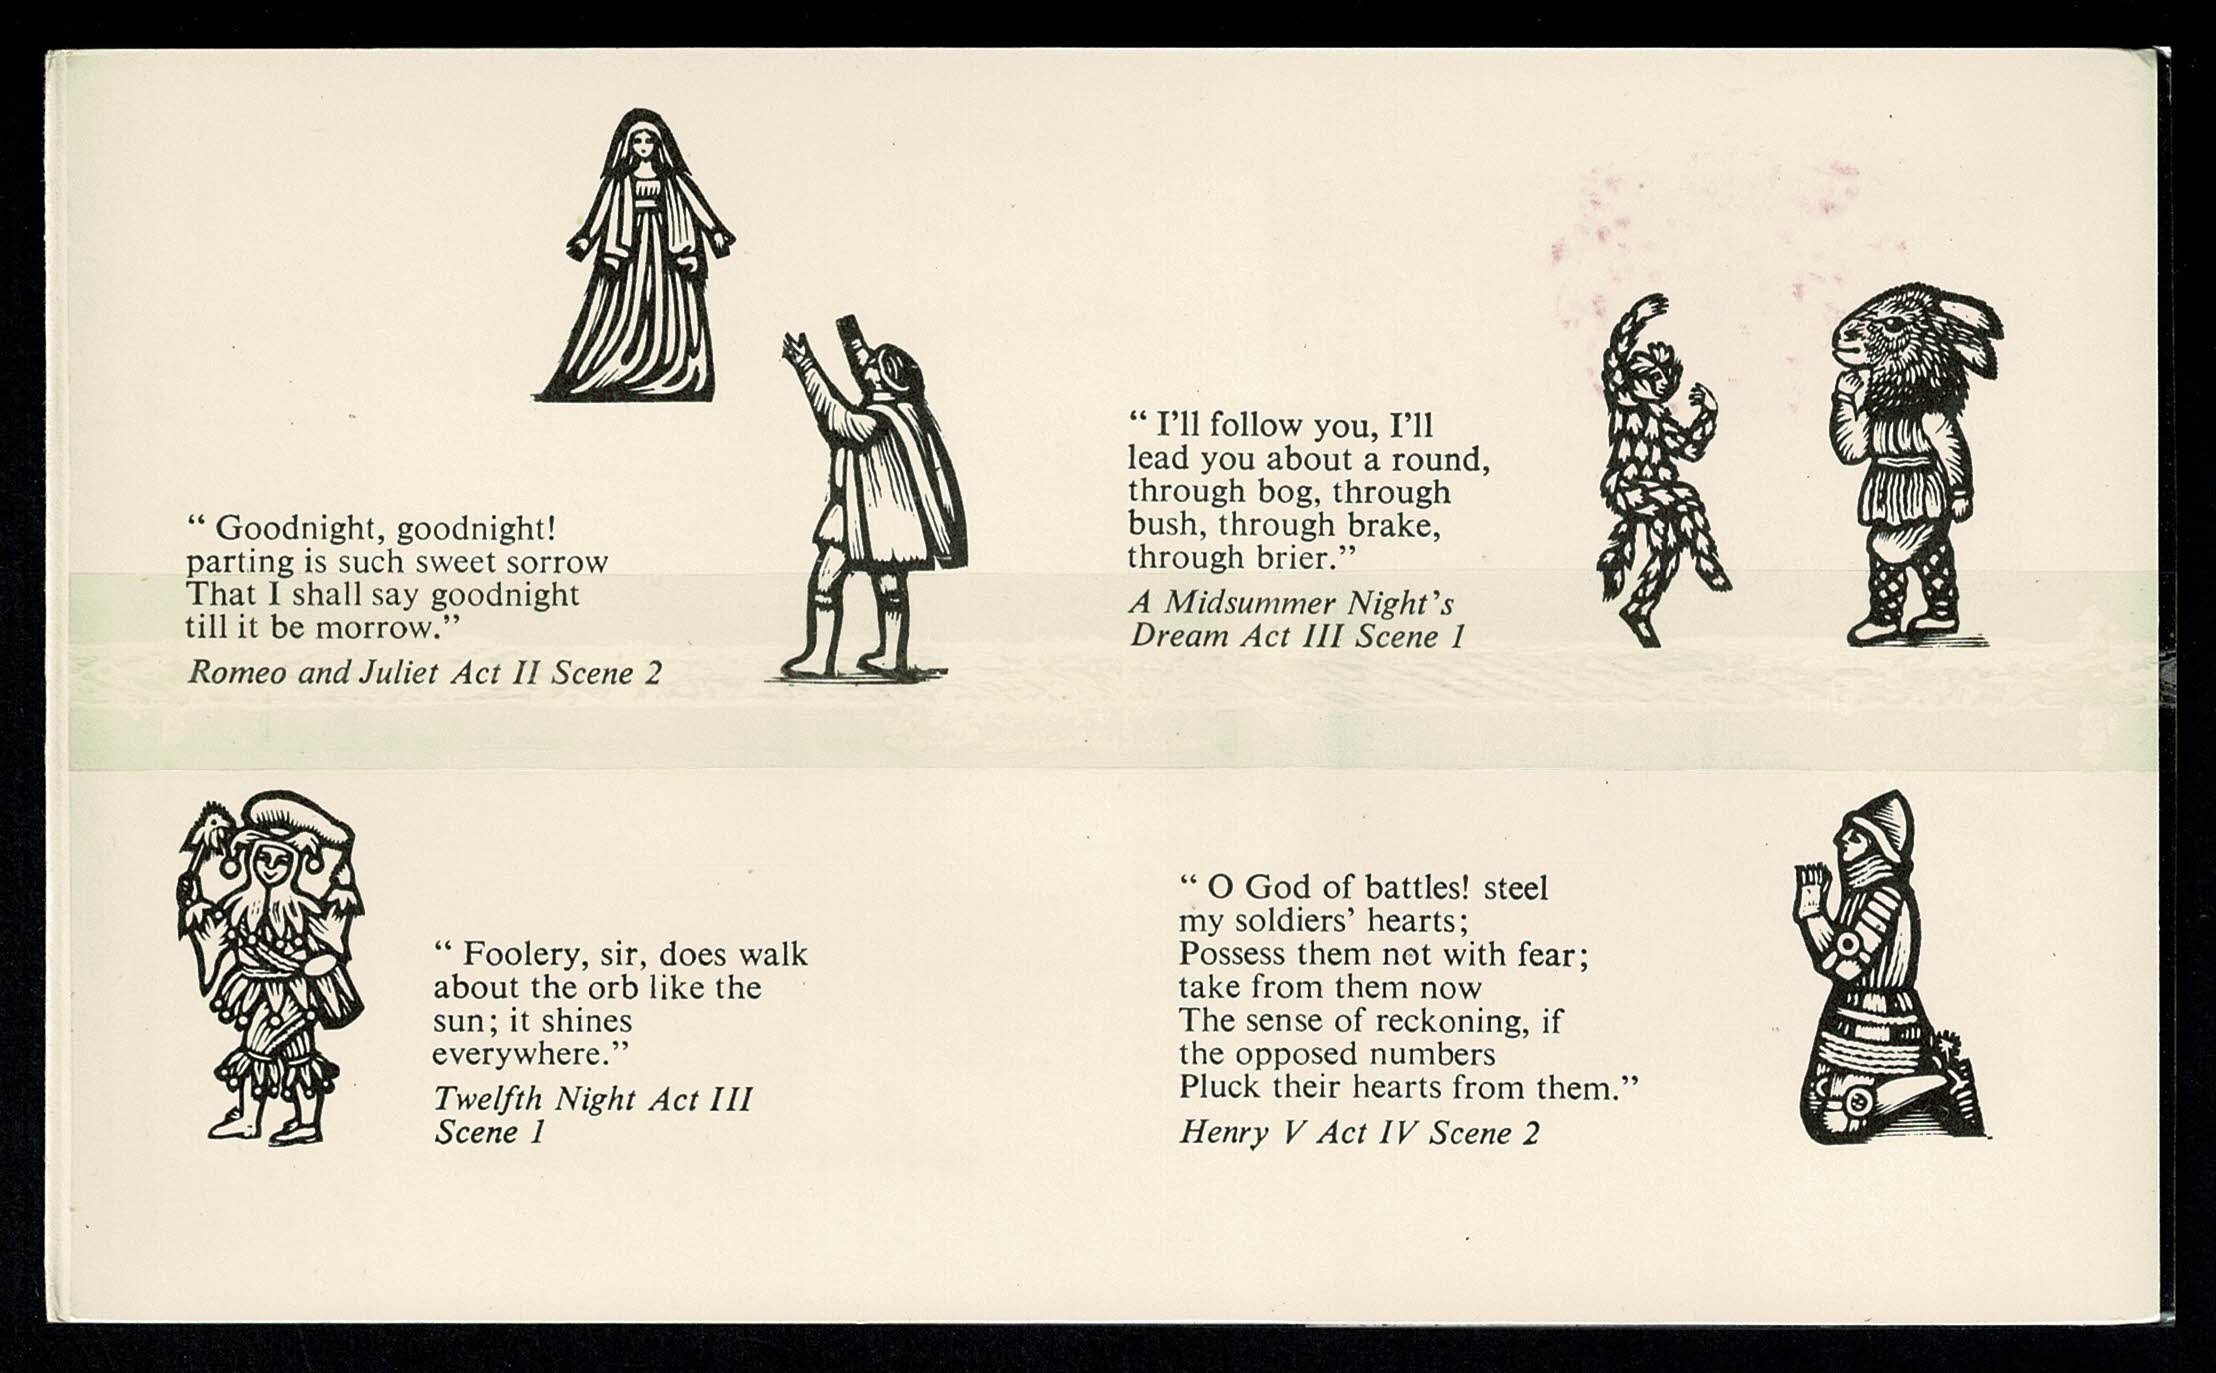 “ Goodnight, goodnight!
parting is such sweet sorrow
That I shall say goodnight
till it be morrow.”
Romeo and Juliet Act II Scene 2
“ I'll follow you, I'll
lead you about a round,
through bog, through
bush, through brake,
through brier.”
A Midsummer Night's
Dream Act III Scene 1
“ Foolery, sir, does walk
about the orb like the
sun; it shines
everywhere.”
Twelfth Night Act III
Scene 1
“ O God of battles! steel
my soldiers’ hearts;
Possess them not with fear;
take from them now
The sense of reckoning, if
the opposed numbers
Pluck their hearts from them.”
Henry V Act IV Scene 2